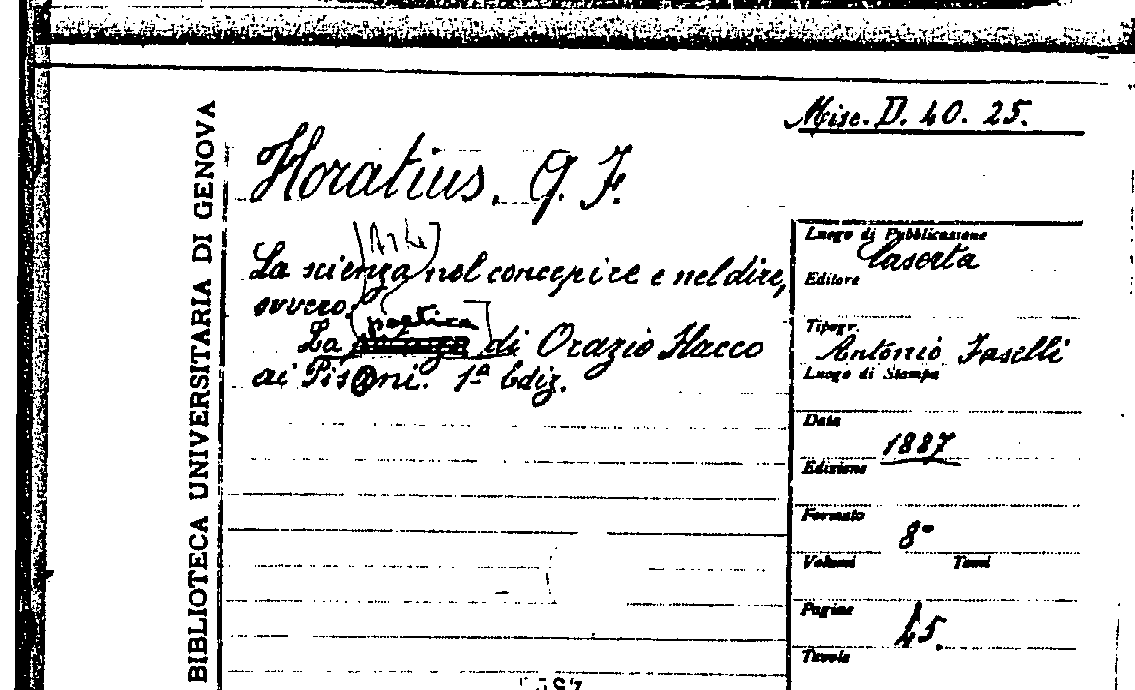 Misc. D. 40. 25.
BIBLIOTECA UNIVERSITARIA DI GENOVA
Horatius, Q. F.
La scienza nel concepire e nel dire,
ovvero
La poetica di Orazio Flacco
ai Pisoni. 1ª Ediz.
Luogo di Pubblicazione
Caserta
Editore
Tipogr.
Antonio Faselli
Luogo di Stampa
Data
1887
Edizione
Formato
8°
Volumi Tomi
Pagine
45.
Tavole